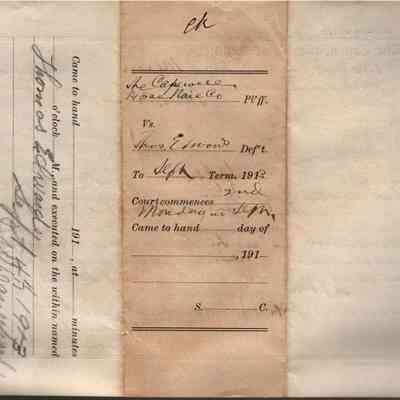 ck
The Capewell
Horse Nail Co Pl'ff.
Vs.
Thos Edwards Def't.
To Sept Term, 191
Court commences 2nd
Monday in Sept
Came to hand day of
, 191
S. C.
Came to hand 191 , at minutes
o'clock M., and executed on the within named
Thomas Edwards
Sept 4th 1913